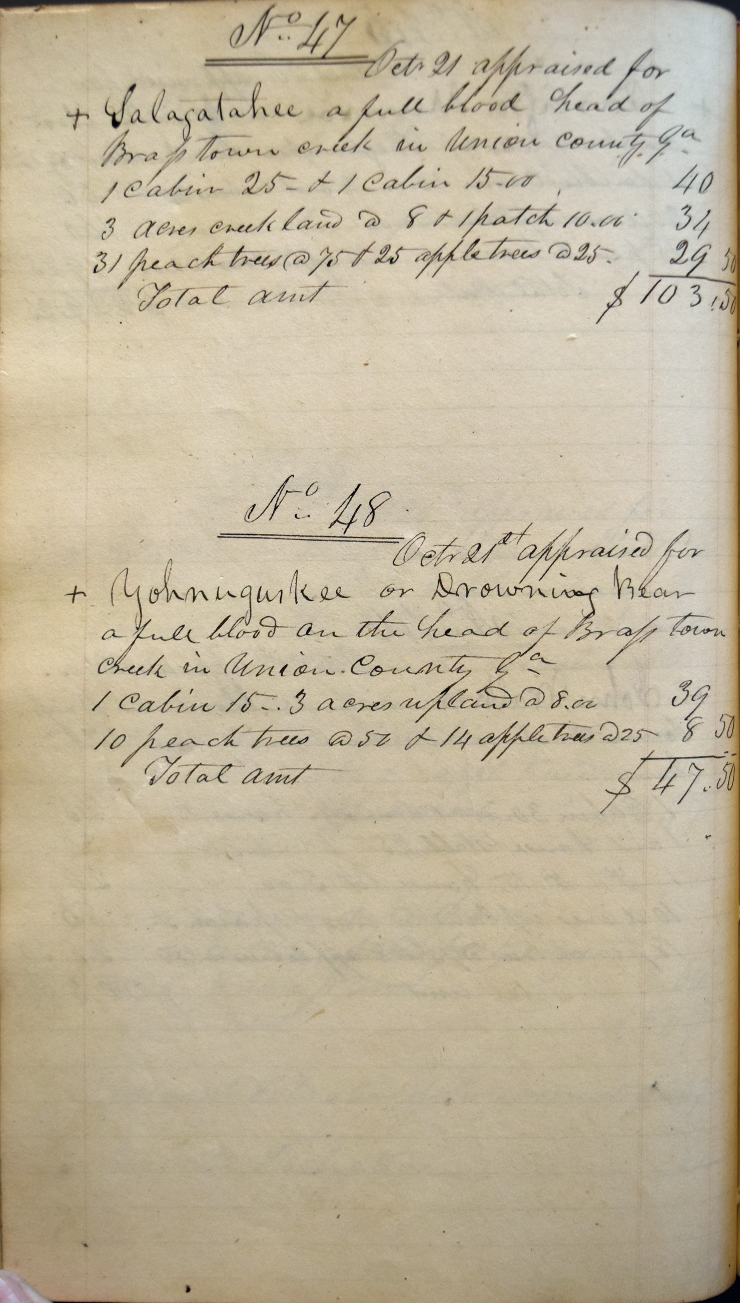 No. 47
Octr 21 appraised for
+ Salagatahee a full blood head of
Brasstown creek in Union county Ga
1 cabin 25- & 1 cabin 15.00 40
3 acres creek land @ 8 & 1 patch 10.00 34
31 peach trees @ 75 & 25 apple trees @ 25. 29 50
Total amt $103.50
No. 48
Octr 21st appraised for
+ Yohnuguskee or Drowning Bear
a full blood on the head of Brasstown
creek in Union County Ga
1 cabin 15-. 3 acres upland @ 8.00 39
10 peach trees @ 50 & 14 apple trees @ 25 8 50
Total amt $47.50